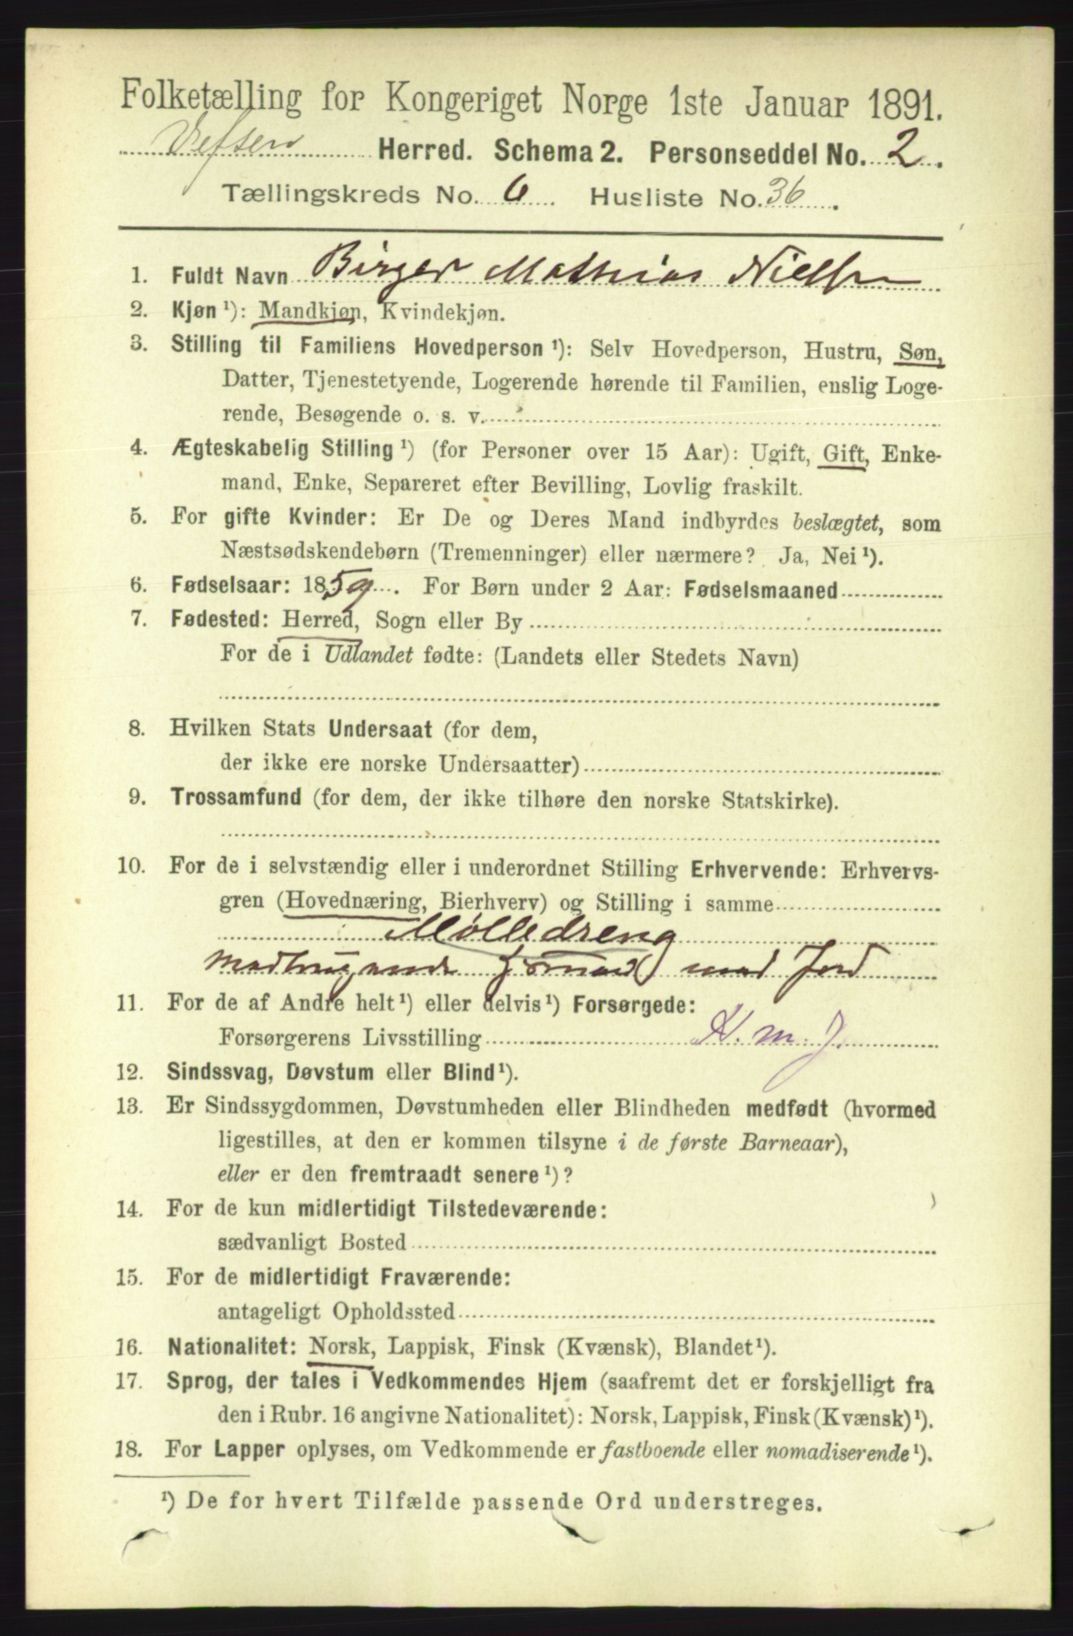 Folketælling for Kongeriget Norge 1ste Januar 1891.
Vefsen Herred. Schema 2. Personseddel No. 2.
Tællingskreds No. 6. Husliste No. 36.
1. Fuldt Navn Birger Mathias Nielsen
2. Kjøn ¹): Mandkjøn, Kvindekjøn.
3. Stilling til Familiens Hovedperson ¹): Selv Hovedperson, Hustru, Søn,
Datter, Tjenestetyende, Logerende hørende til Familien, enslig Loge-
rende, Besøgende o. s. v.
4. Ægteskabelig Stilling ¹) (for Personer over 15 Aar): Ugift, Gift, Enke-
mand, Enke, Separeret efter Bevilling, Lovlig fraskilt.
5. For gifte Kvinder: Er De og Deres Mand indbyrdes beslægtet, som
Næstsødskendebørn (Tremenninger) eller nærmere? Ja, Nei ¹).
6. Fødselsaar: 1859. For Børn under 2 Aar: Fødselsmaaned
7. Fødested: Herred, Sogn eller By
For de i Udlandet fødte: (Landets eller Stedets Navn)
8. Hvilken Stats Undersaat (for dem,
der ikke ere norske Undersaatter)
9. Trossamfund (for dem, der ikke tilhøre den norske Statskirke).
10. For de i selvstændig eller i underordnet Stilling Erhvervende: Erhvervs-
gren (Hovednæring, Bierhverv) og Stilling i samme
Mølledreng
med Jord
11. For de af Andre helt ¹) eller delvis ¹) Forsørgede:
Forsørgerens Livsstilling H. m. J.
12. Sindssvag, Døvstum eller Blind ¹).
13. Er Sindssygdommen, Døvstumheden eller Blindheden medfødt (hvormed
ligestilles, at den er kommen tilsyne i de første Barneaar),
eller er den fremtraadt senere ¹)?
14. For de kun midlertidigt Tilstedeværende:
sædvanligt Bosted
15. For de midlertidigt Fraværende:
antageligt Opholdssted
16. Nationalitet: Norsk, Lappisk, Finsk (Kvænsk), Blandet ¹).
17. Sprog, der tales i Vedkommendes Hjem (saafremt det er forskjelligt fra
den i Rubr. 16 angivne Nationalitet): Norsk, Lappisk, Finsk (Kvænsk) ¹).
18. For Lapper oplyses, om Vedkommende er fastboende eller nomadiserende ¹).
¹) De for hvert Tilfælde passende Ord understreges.